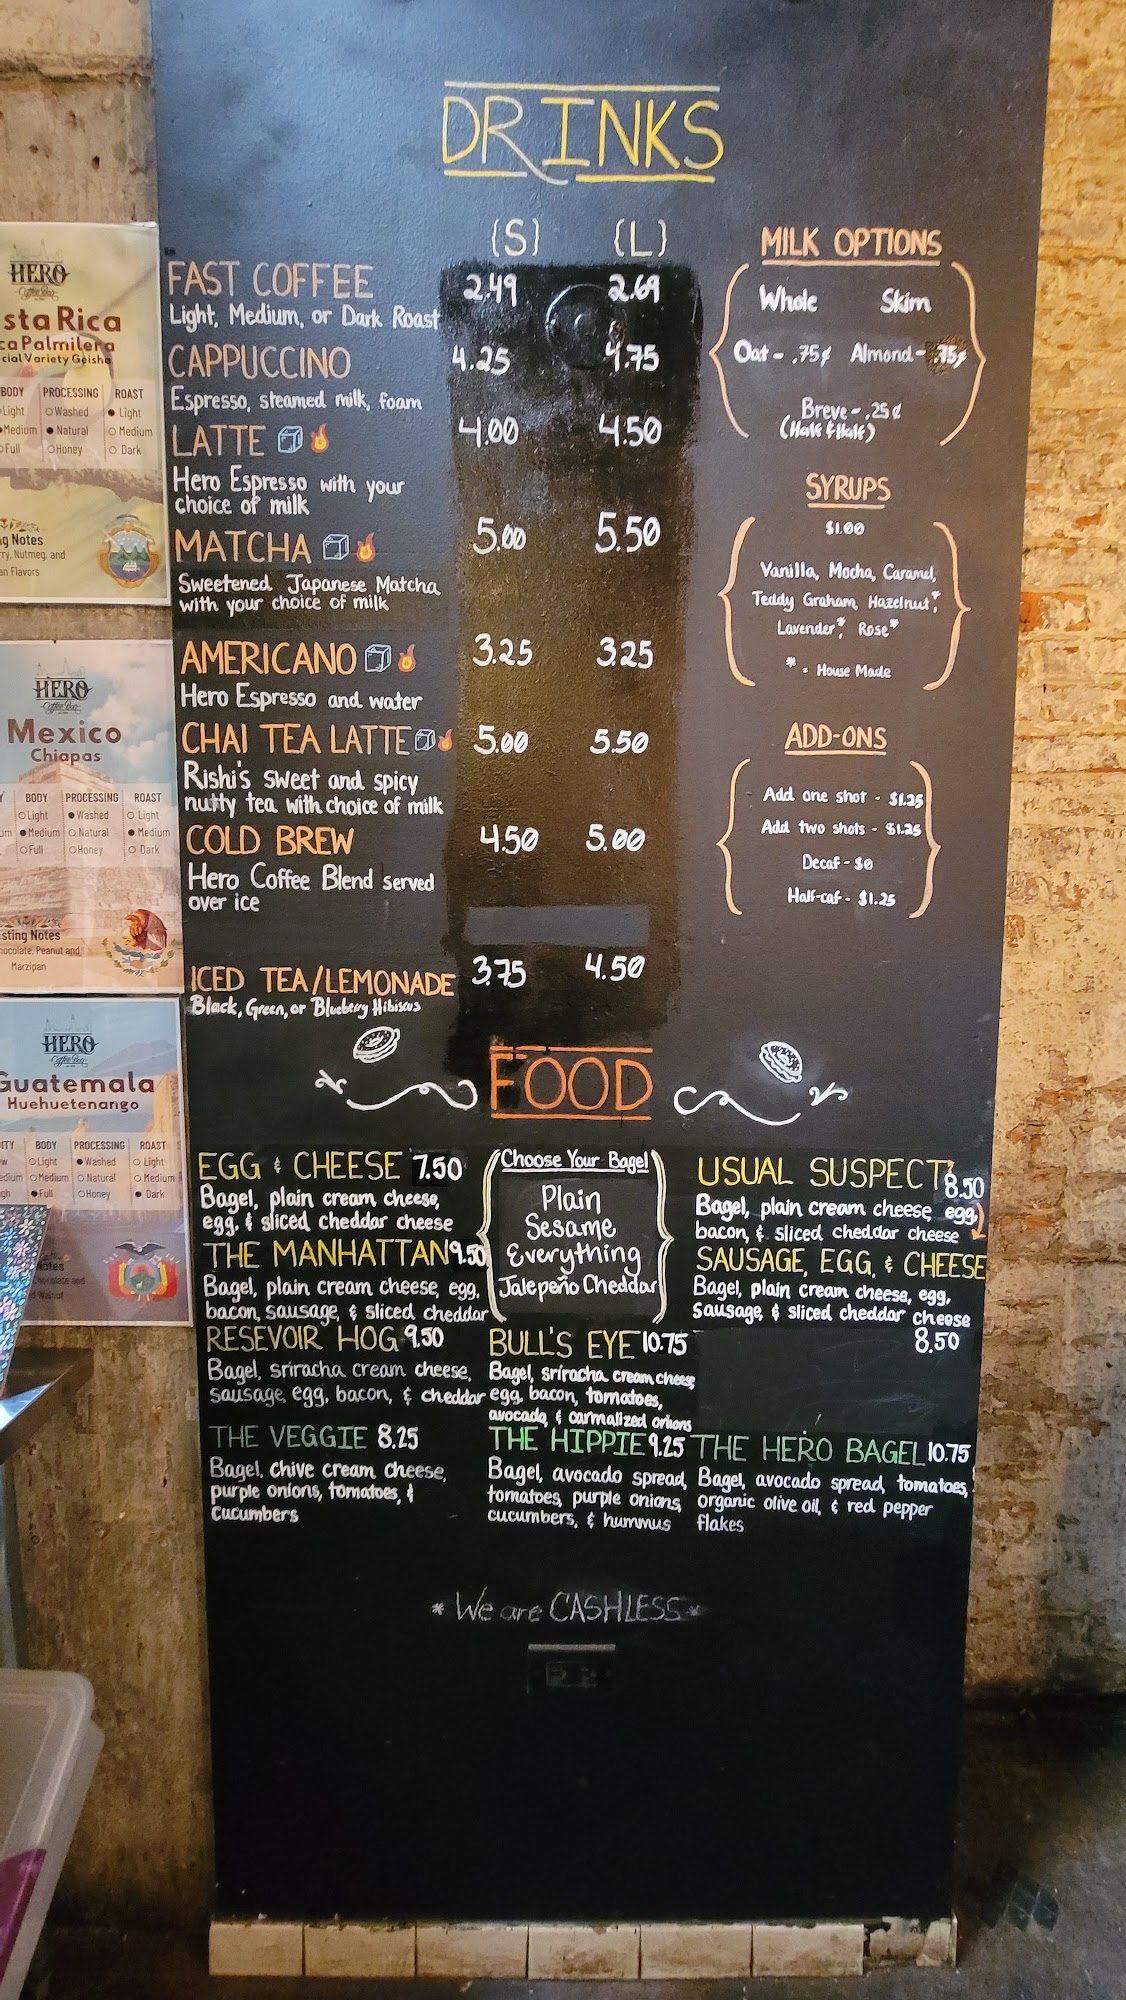 DRINKS
(S) (L)
FAST COFFEE 2.49 2.69
Light, Medium, or Dark Roast
CAPPUCCINO 4.25 4.75
Espresso, steamed milk, foam
LATTE 4.00 4.50
Hero Espresso with your
choice of milk
MATCHA 5.00 5.50
Sweetened Japanese Matcha
with your choice of milk
AMERICANO 3.25 3.25
Hero Espresso and water
CHAI TEA LATTE 5.00 5.50
Rishi's sweet and spicy
nutty tea with choice of milk
COLD BREW 4.50 5.00
Hero Coffee Blend served
over ice
ICED TEA/LEMONADE 3.75 4.50
Black, Green, or Blueberry Hibiscus
MILK OPTIONS
Whole Skim
Oat - .75¢ Almond - .75¢
Breve - .25¢
(Half & Half)
SYRUPS
$1.00
Vanilla, Mocha, Caramel,
Teddy Graham, Hazelnut*,
Lavender*, Rose*
* = House Made
ADD-ONS
Add one shot - $1.25
Add two shots - $1.25
Decaf - $0
Half-caf - $1.25
FOOD
EGG & CHEESE 7.50
Bagel, plain cream cheese,
egg, & sliced cheddar cheese
THE MANHATTAN 9.50
Bagel, plain cream cheese, egg,
bacon, sausage, & sliced cheddar
RESEVOIR HOG 9.50
Bagel, sriracha cream cheese,
sausage, egg, bacon, & cheddar
THE VEGGIE 8.25
Bagel, chive cream cheese,
purple onions, tomatoes, &
cucumbers
Choose Your Bagel
Plain
Sesame
Everything
Jalepeño Cheddar
BULL'S EYE 10.75
Bagel, sriracha cream cheese,
egg, bacon, tomatoes,
avocado, & carmalized onions
THE HIPPIE 9.25
Bagel, avocado spread,
tomatoes, purple onions,
cucumbers, & hummus
USUAL SUSPECT 8.50
Bagel, plain cream cheese, egg,
bacon, & sliced cheddar cheese
SAUSAGE, EGG, & CHEESE
Bagel, plain cream cheese, egg,
sausage, & sliced cheddar cheese
8.50
THE HERO BAGEL 10.75
Bagel, avocado spread, tomatoes,
organic olive oil, & red pepper
flakes
* We are CASHLESS *
HERO
Coffee Bar
sta Rica
ca Palmilera
cial Variety Geisha
BODY PROCESSING ROAST
Light Washed Light
Medium Natural Medium
Full Honey Dark
g Notes
rry, Nutmeg, and
an Flavors
HERO
Coffee Bar
Mexico
Chiapas
BODY PROCESSING ROAST
Light Washed Light
um Medium Natural Medium
Full Honey Dark
sting Notes
hocolate, Peanut and
Marzipan
HERO
Coffee Bar
Guatemala
Huehuetenango
ITY BODY PROCESSING ROAST
w Light Washed Light
edium Medium Natural Medium
gh Full Honey Dark
Notes